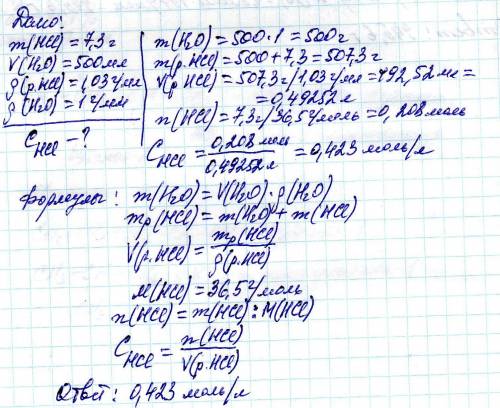 Дано:
m(HCl) = 7,3 г
V(H₂O) = 500 мл
ρ(р.HCl) = 1,03 г/мл
ρ(H₂O) = 1 г/мл
C HCl - ?
m(H₂O) = 500·1 = 500 г
m(р.HCl) = 500 + 7,3 = 507,3 г
V(р.HCl) = 507,3 г/1,03 г/мл = 492,52 мл =
= 0,49252 л
n(HCl) = 7,3 г/36,5 г/моль = 0,208 моль
C HCl = 0,208 моль / 0,49252 л = 0,423 моль/л
Формулы: m(H₂O) = V(H₂O)·ρ(H₂O)
mр(HCl) = m(H₂O) + m(HCl)
V(р.HCl) = mр(HCl) / ρ(р.HCl)
M(HCl) = 36,5 г/моль
n(HCl) = m(HCl) : M(HCl)
C HCl = n(HCl) / V(р.HCl)
Ответ: 0,423 моль/л